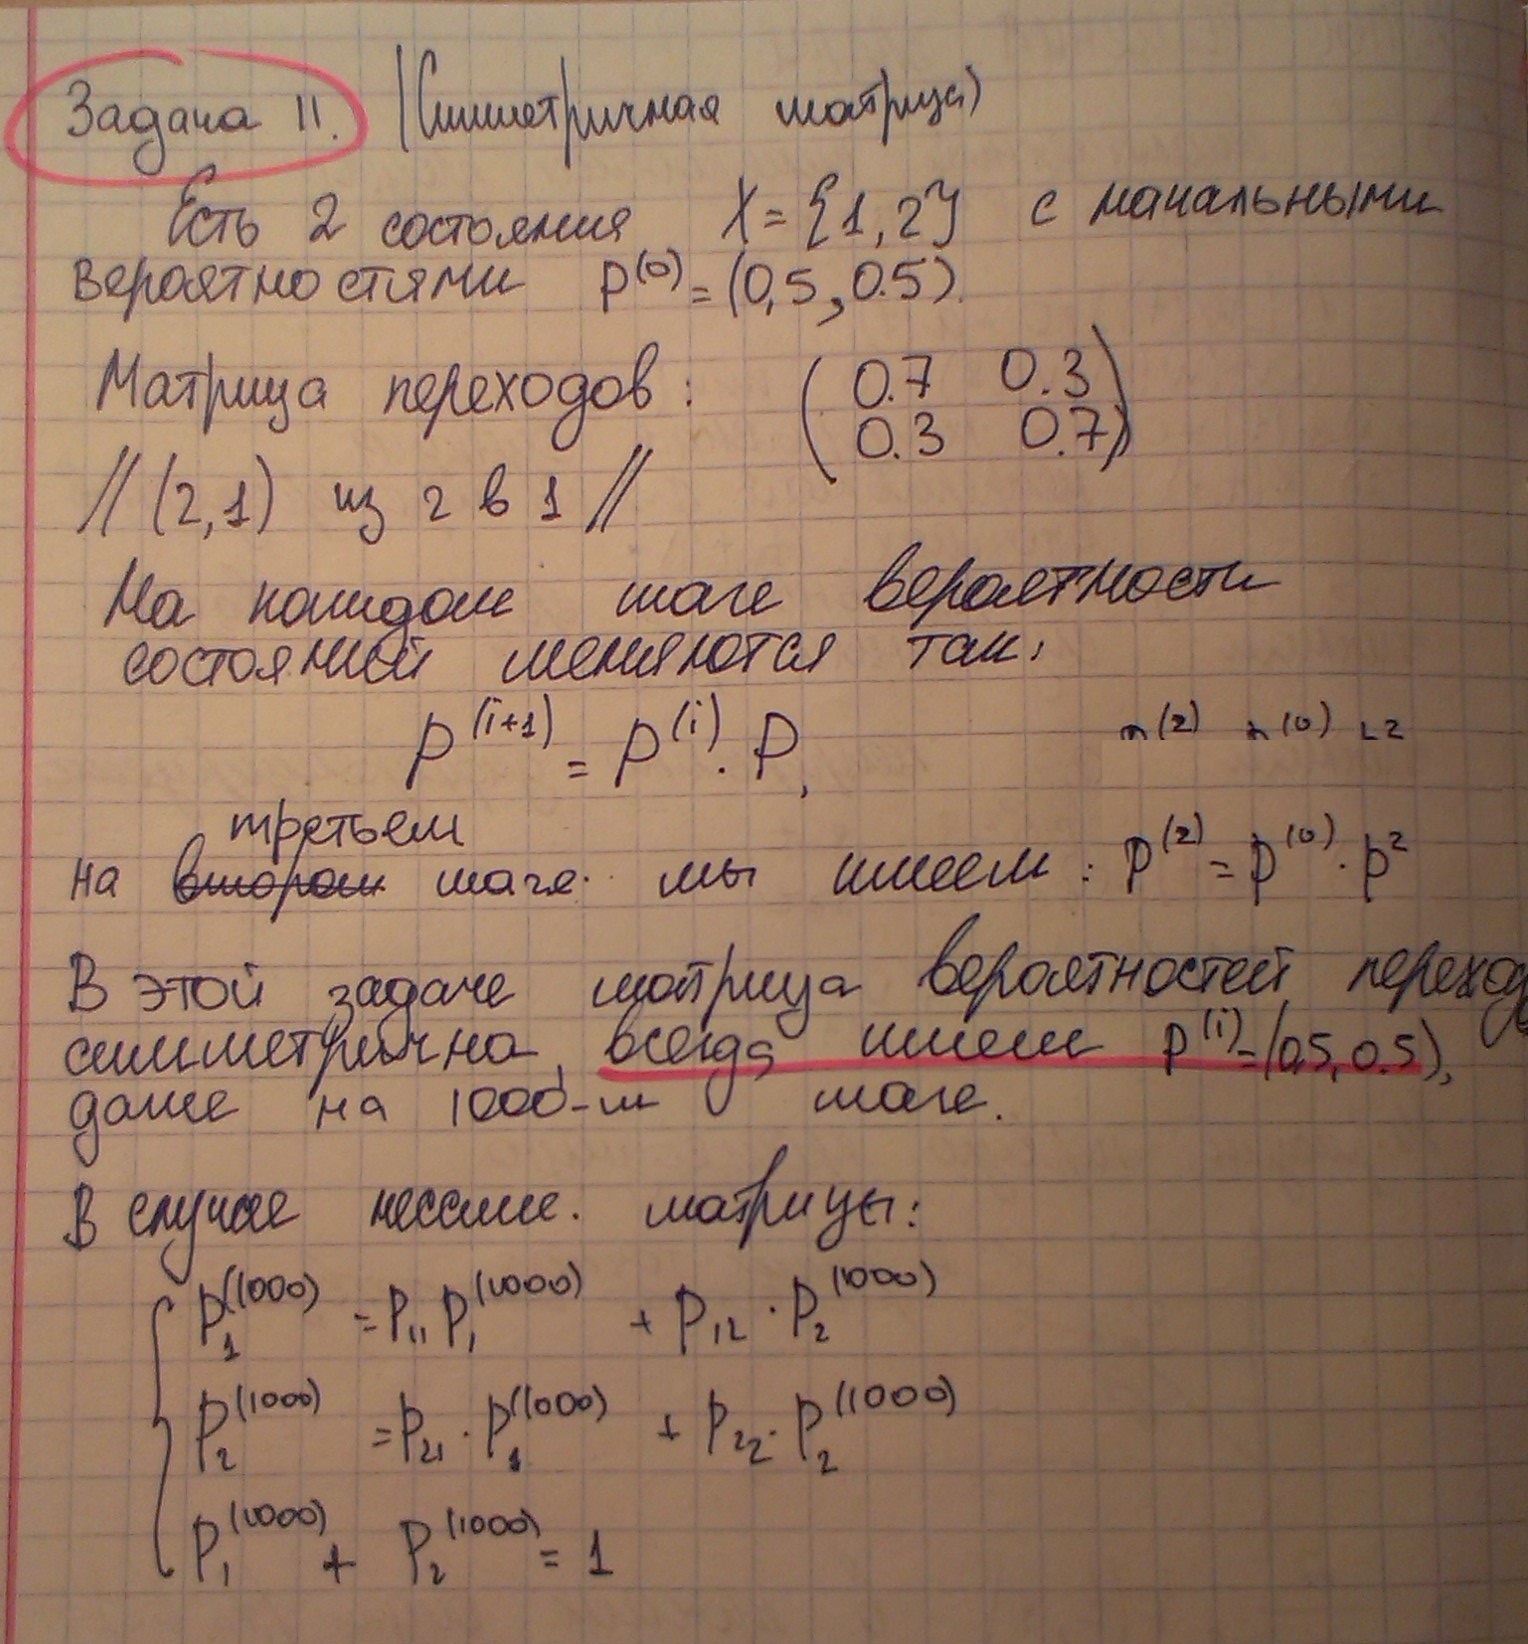 Задача 11. (Симметричная матрица)
Есть 2 состояния X = {1, 2} с начальными
вероятностями p^(0) = (0,5, 0.5).
Матрица переходов: (0.7 0.3
0.3 0.7)
// (2,1) из 2 в 1 //
На каждом шаге вероятности
состояний меняются так:
p^(i+1) = p^(i) · P,
третьем
на втором шаге мы имеем: p^(2) = p^(0) · p^2
В этой задаче матрица вероятностей переход
симметрична, всегда имеем p^(i) = (0,5, 0.5),
даже на 1000-м шаге.
В случае несимм. матрицы:
p_1^(1000) = p_11 p_1^(1000) + p_12 · p_2^(1000)
p_2^(1000) = p_21 · p_1^(1000) + p_22 · p_2^(1000)
p_1^(1000) + p_2^(1000) = 1